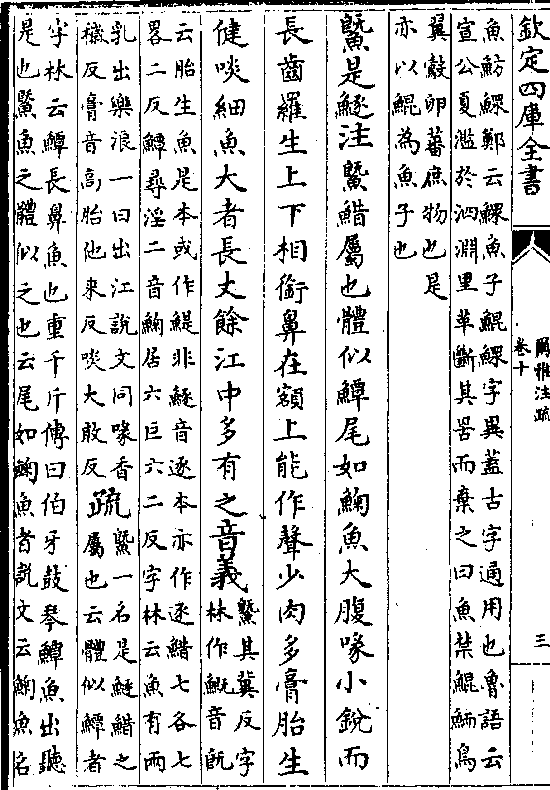 欽定四庫全書
爾雅注疏
卷十
三
魚魴鱞鄭云鱞魚子鯤鱞字異蓋古字通用也魯語云
宣公夏濫於泗淵里革斷其罟而棄之曰魚禁鯤鮞鳥
翼鷇卵蕃庶物也是
亦以鯤為魚子也
鱀是鱁注鱀䱜屬也體似鱏尾如䱡魚大腹喙小銳而
長齒羅生上下相銜鼻在額上能作聲少肉多膏胎生
健啖細魚大者長丈餘江中多有之音義鱀其冀反字
林作音旣
云胎生魚是本或作鯷非鱁音逐本亦作逐䱜七各七
畧二反鱏尋淫二音䱡居六巨六二反字林云魚有兩
乳出樂浪一曰出江說文同喙香
穢反膏音高胎他来反啖大敢反
疏鱀一名是鱁䱜之
屬也云體似鱏者
字林云鱏長鼻魚也重千斤傳曰伯牙鼓琴鱏魚出聽
是也鱀魚之體似之也云尾如䱡魚者說文云䱡魚名